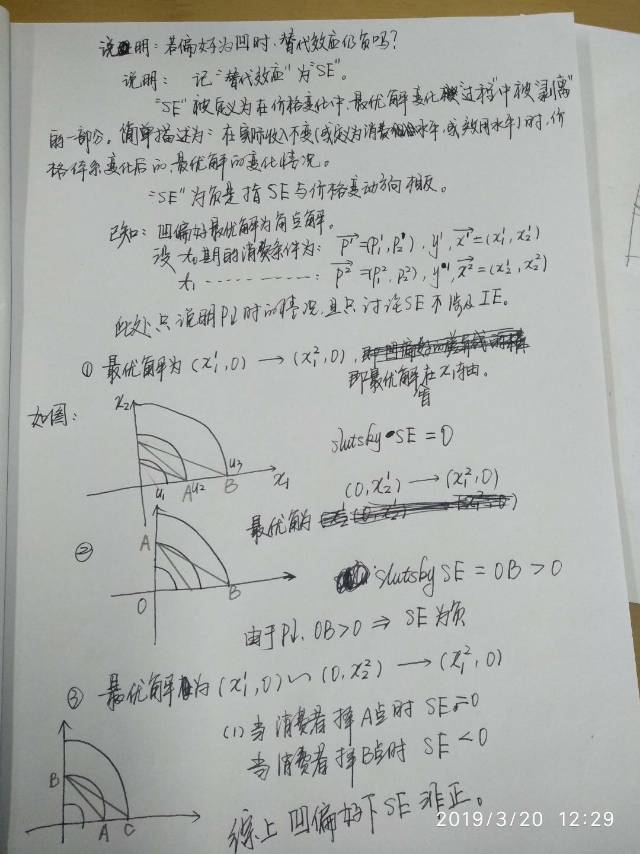 说明：若偏好为凹时，替代效应仍负吗？
说明： 记"替代效应"为"SE"。
"SE"被定义为在价格变化中，最优解变化过程中被"剥离"
的一部分。简单描述为：在实际收入不变(或定义为消费水平，或效用水平)时，价
格体系变化后的最优解的变化情况。
"SE"为负是指SE与价格变动方向相反。
已知：凹偏好最优解为角点解。
设 t₀期的消费条件为： P¹=(P₁¹,P₂¹), y¹, x¹=(x₁¹,x₂¹)
t₁ ------------: P²=(P₁²,P₂²), y, x²=(x₁²,x₂²)
此处只说明P↓时的情况，且只讨论SE不涉及IE。
① 最优解为(x₁¹,0)→(x₁²,0),
即最优解在x₁轴。
如图：
x₂
slutsky SE=0
u₁ A u₂ B u₃ x₁
(0,x₂¹)→(x₁²,0)
最优解为
②
A
slutsby SE=OB>0
O B
由于P↓. OB>0 ⇒ SE为负
③ 最优解为(x₁¹,0)∽(0,x₂²)→(x₁²,0)
(1)当消费者择A点时 SE=0
当消费者择B点时 SE<0
B
A C
综上 凹偏好下SE非正。
2019/3/20 12:29